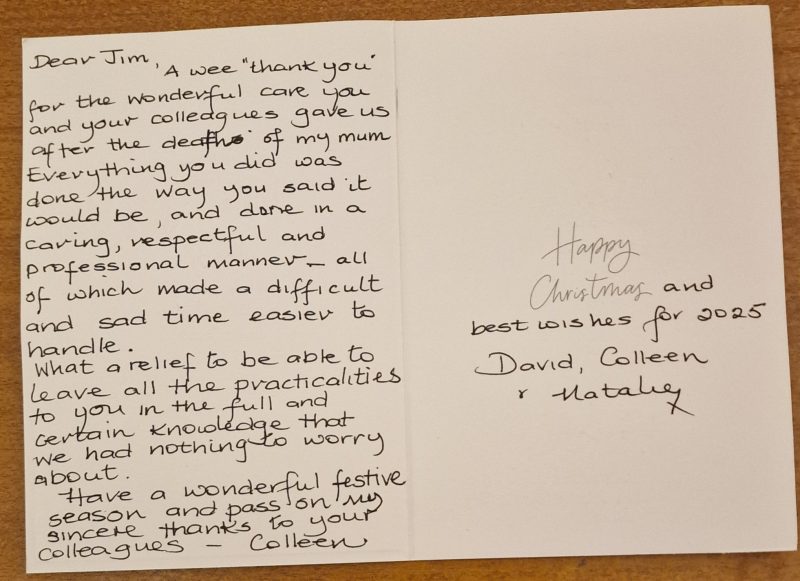 Dear Jim,
A wee "thank you"
for the wonderful care you
and your colleagues gave us
after the death of my mum
Everything you did was
done the way you said it
would be, and done in a
caring, respectful and
professional manner – all
of which made a difficult
and sad time easier to
handle.
What a relief to be able to
leave all the practicalities
to you in the full and
certain knowledge that
we had nothing to worry
about.
Have a wonderful festive
season and pass on my
sincere thanks to your
colleagues – Colleen
Happy
Christmas and
best wishes for 2025
David, Colleen
& Natalie
x